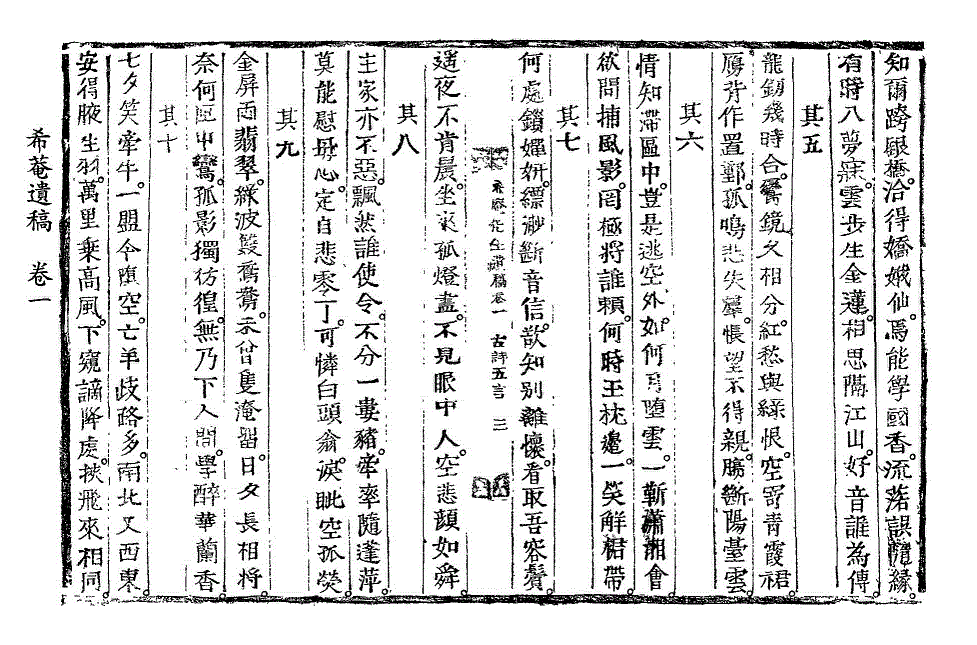 知爾跨銀橋。洽得嬌娥仙。焉能學國香。流落誤隨緣。
有時入夢寐。雲步生金蓮。相思隔江山。好音誰為傳。
其五
龍釰幾時合。鸞鏡久相分。紅愁與綠恨。空寄青霞裙。
雁背作置郵。孤鳴悲失羣。悵望不得親。腸斷陽臺雲。
其六
情知滯區中。豈是逃空外。如何月墮雲。一靳瀟湘會。
欲問捕風影。罔極將誰賴。何時玉枕邊。一笑解裙帶。
其七
何處鎖嬋姸。縹渺斷音信。欲知別離懷。看取吾容鬢。
希菴先生遺稿卷一 古詩五言 三
遙夜不肯晨。坐來孤燈盡。不見眼中人。空悲顔如舜。
其八
主家亦不惡。飄然誰使令。不分一婁豬。牽率隨蓬萍。
莫能慰母心。定自悲零丁。可憐白頭翁。淚眦空孤熒。
其九
金屏兩翡翠。綠波雙鴛鴦。未曾隻淹留。日夕長相將。
奈何匣中鸞。孤影獨彷徨。無乃下人間。學醉華蘭香。
其十
七夕笑牽牛。一盟今墮空。亡羊歧路多。南北又西東。
安得腋生羽。萬里乘高風。下窺謫降處。挾飛來相同。
希菴遺稿 卷一